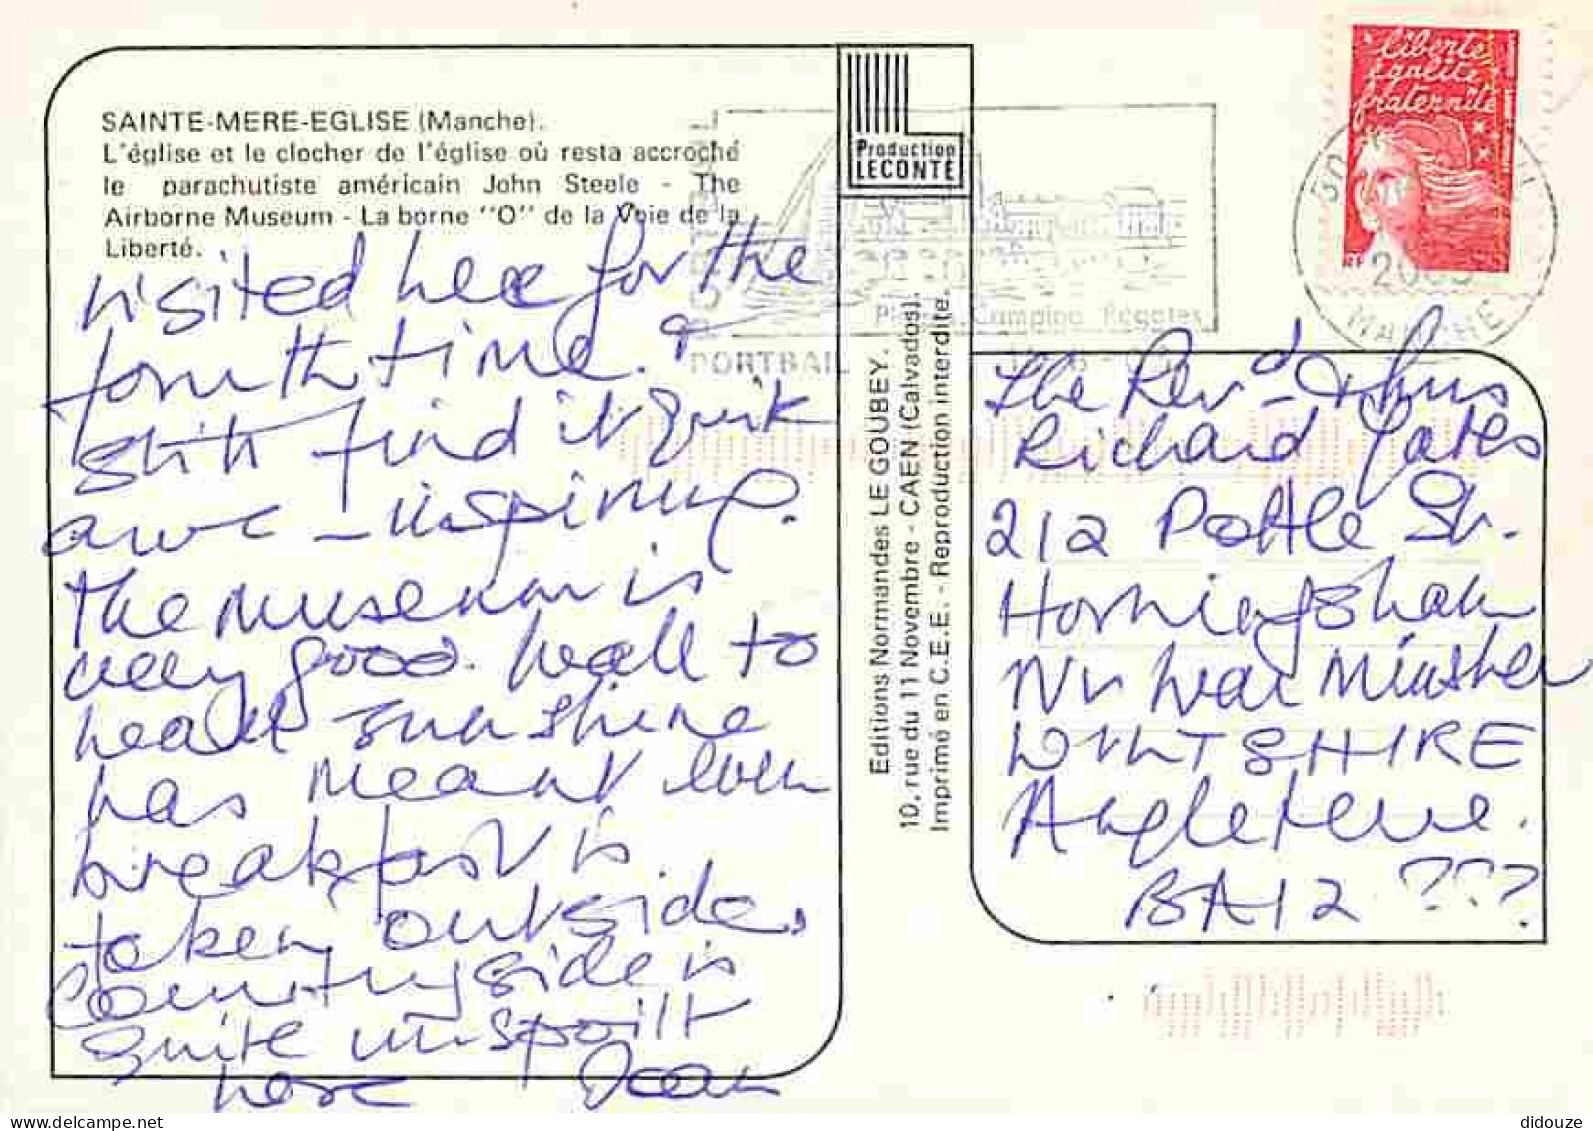 SAINTE-MERE-EGLISE (Manche).
L'église et le clocher de l'église où resta accroché
le parachutiste américain John Steele - The
Airborne Museum - La borne "O" de la Voie de la
Liberté.
visited here for the
fourth time. &
still find it quite
awe-inspiring.
The museum is
very good. Wall to
wall sunshine
has meant even
breakfast is
taken outside,
Countryside is
quite unspoilt
here Joan
Production
LECONTE
Editions Normandes LE GOUBEY.
10, rue du 11 Novembre - CAEN (Calvados).
Imprimé en C.E.E. - Reproduction interdite.
liberté
égalité
fraternité
RF
MANCHE
PORTBAIL
Camping Régates
The Revd & Mrs
Richard Yates
212 Pottle St.
Horningsham
Nr Warminster
WILTSHIRE
Angleterre.
BA12 ???
didouze